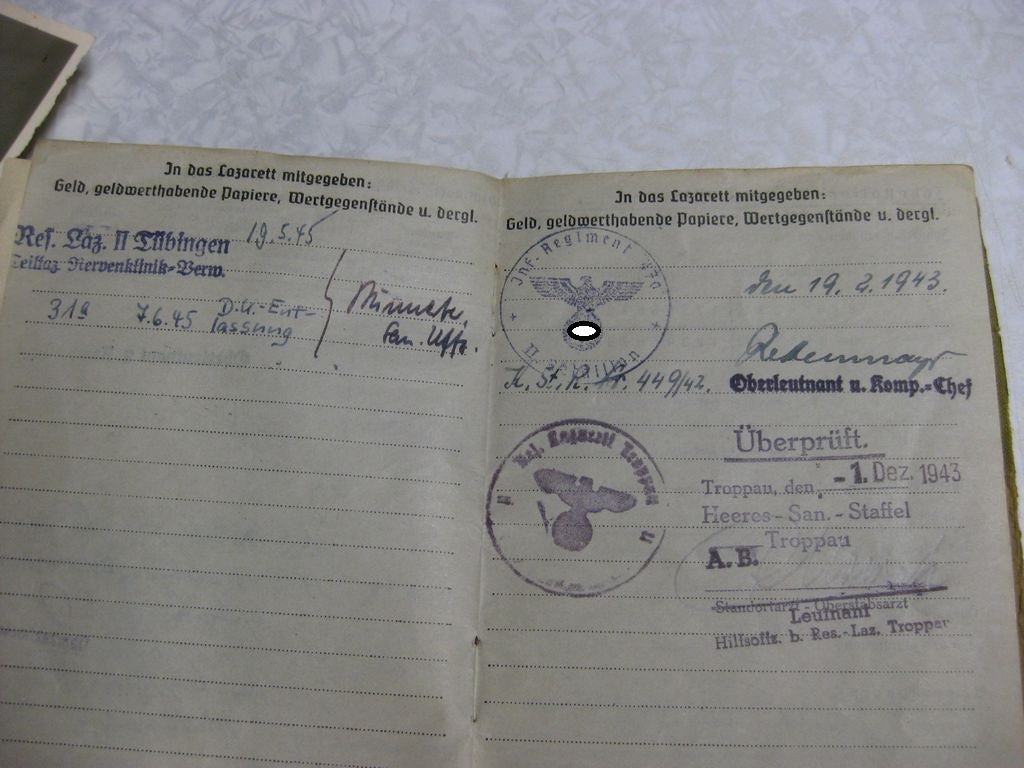 In das Lazarett mitgegeben:
Geld, geldwerthabende Papiere, Wertgegenstände u. dergl.
Res. Laz. II Tübingen 19.5.45
Teillaz. Nervenklinik-Verw.
31a 7.6.45 D.U.-Ent-
lassung
San. Uffz.
In das Lazarett mitgegeben:
Geld, geldwerthabende Papiere, Wertgegenstände u. dergl.
Inf. Regiment
II. Bataillon
den 19. 2. 1943.
K. St. K. Nr. 449/42.
Oberleutnant u. Komp.-Chef
Res. Lazarett Troppau
Überprüft.
Troppau, den -1. Dez. 1943
Heeres-San.-Staffel
Troppau
A.B.
Standortarzt-Oberstabsarzt
Leumann
Hilfsoffz. b. Res.-Laz. Troppau